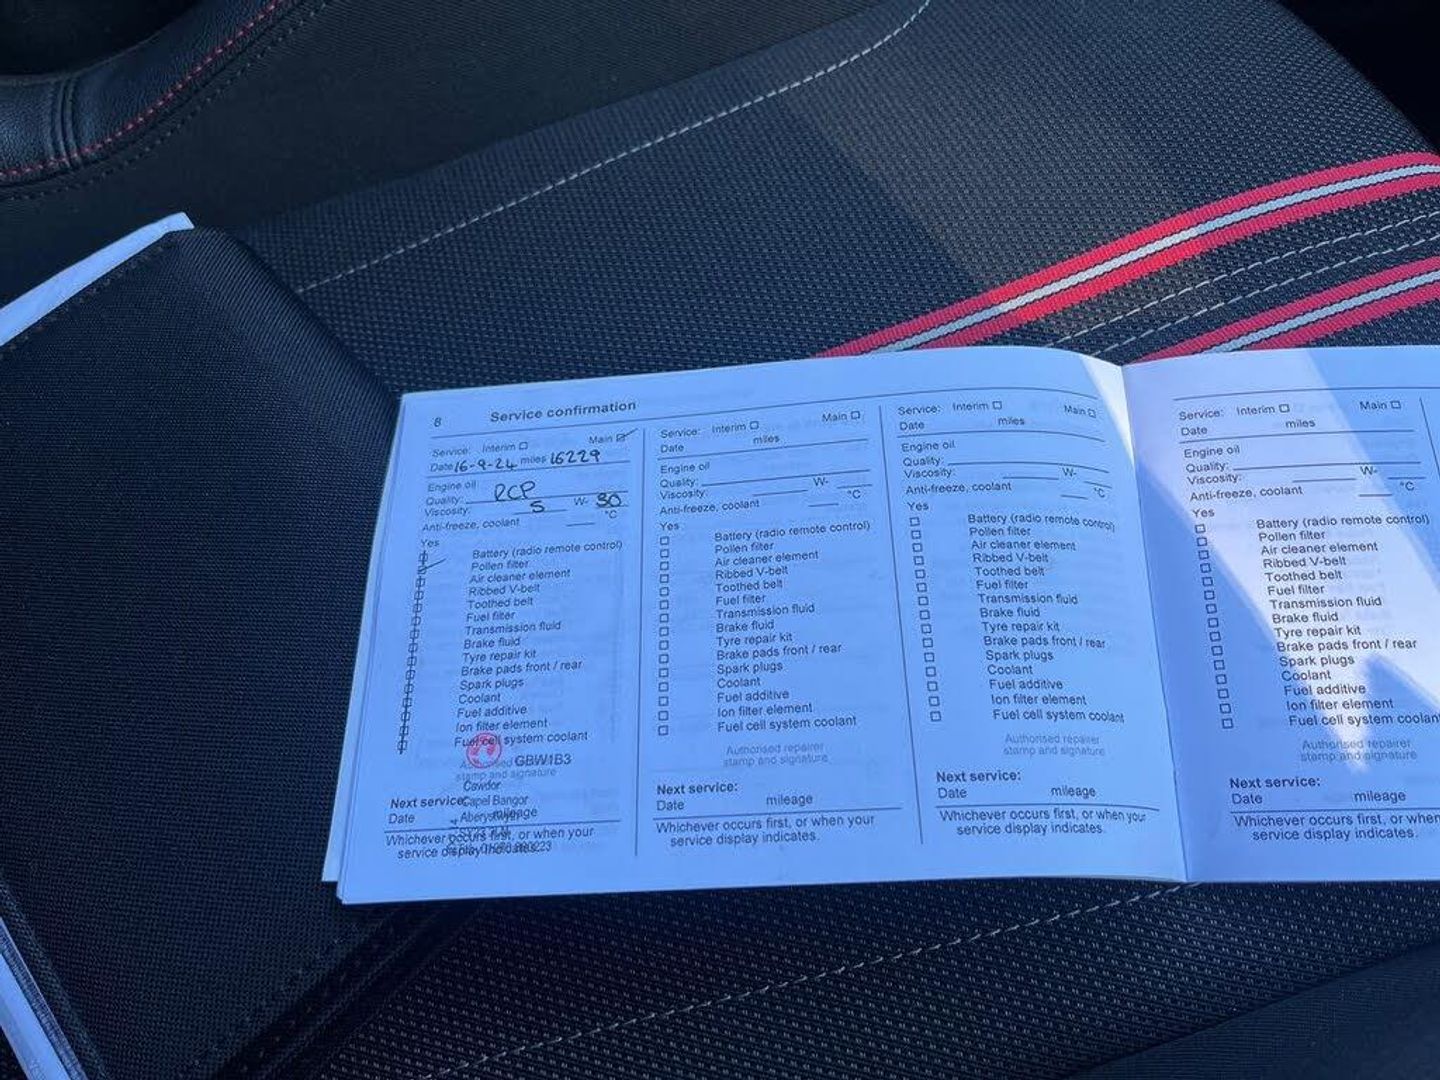 8
Service confirmation
Service: Interim Main
Date 16-9-24 miles 16229
Engine oil
Quality: DCP
Viscosity: 5 W- 30
Anti-freeze, coolant °C
Yes
Battery (radio remote control)
Pollen filter
Air cleaner element
Ribbed V-belt
Toothed belt
Fuel filter
Transmission fluid
Brake fluid
Tyre repair kit
Brake pads front / rear
Spark plugs
Coolant
Fuel additive
Ion filter element
Fuel cell system coolant
GBW1B3
stamp and signature
Cawdor
Next service: Capel Bangor
Date mileage
Whichever occurs first, or when your
service display indicates.
Service: Interim Main
Date miles
Engine oil
Quality:
Viscosity: W-
Anti-freeze, coolant °C
Yes
Battery (radio remote control)
Pollen filter
Air cleaner element
Ribbed V-belt
Toothed belt
Fuel filter
Transmission fluid
Brake fluid
Tyre repair kit
Brake pads front / rear
Spark plugs
Coolant
Fuel additive
Ion filter element
Fuel cell system coolant
Authorised repairer
stamp and signature
Next service:
Date mileage
Whichever occurs first, or when your
service display indicates.
Service: Interim Main
Date miles
Engine oil
Quality:
Viscosity: W-
Anti-freeze, coolant °C
Yes
Battery (radio remote control)
Pollen filter
Air cleaner element
Ribbed V-belt
Toothed belt
Fuel filter
Transmission fluid
Brake fluid
Tyre repair kit
Brake pads front / rear
Spark plugs
Coolant
Fuel additive
Ion filter element
Fuel cell system coolant
Authorised repairer
stamp and signature
Next service:
Date mileage
Whichever occurs first, or when your
service display indicates.
Service: Interim Main
Date miles
Engine oil
Quality:
Viscosity: W-
Anti-freeze, coolant °C
Yes
Battery (radio remote control)
Pollen filter
Air cleaner element
Ribbed V-belt
Toothed belt
Fuel filter
Transmission fluid
Brake fluid
Tyre repair kit
Brake pads front / rear
Spark plugs
Coolant
Fuel additive
Ion filter element
Fuel cell system coolant
Authorised repairer
stamp and signature
Next service:
Date mileage
Whichever occurs first, or when
service display indicates.